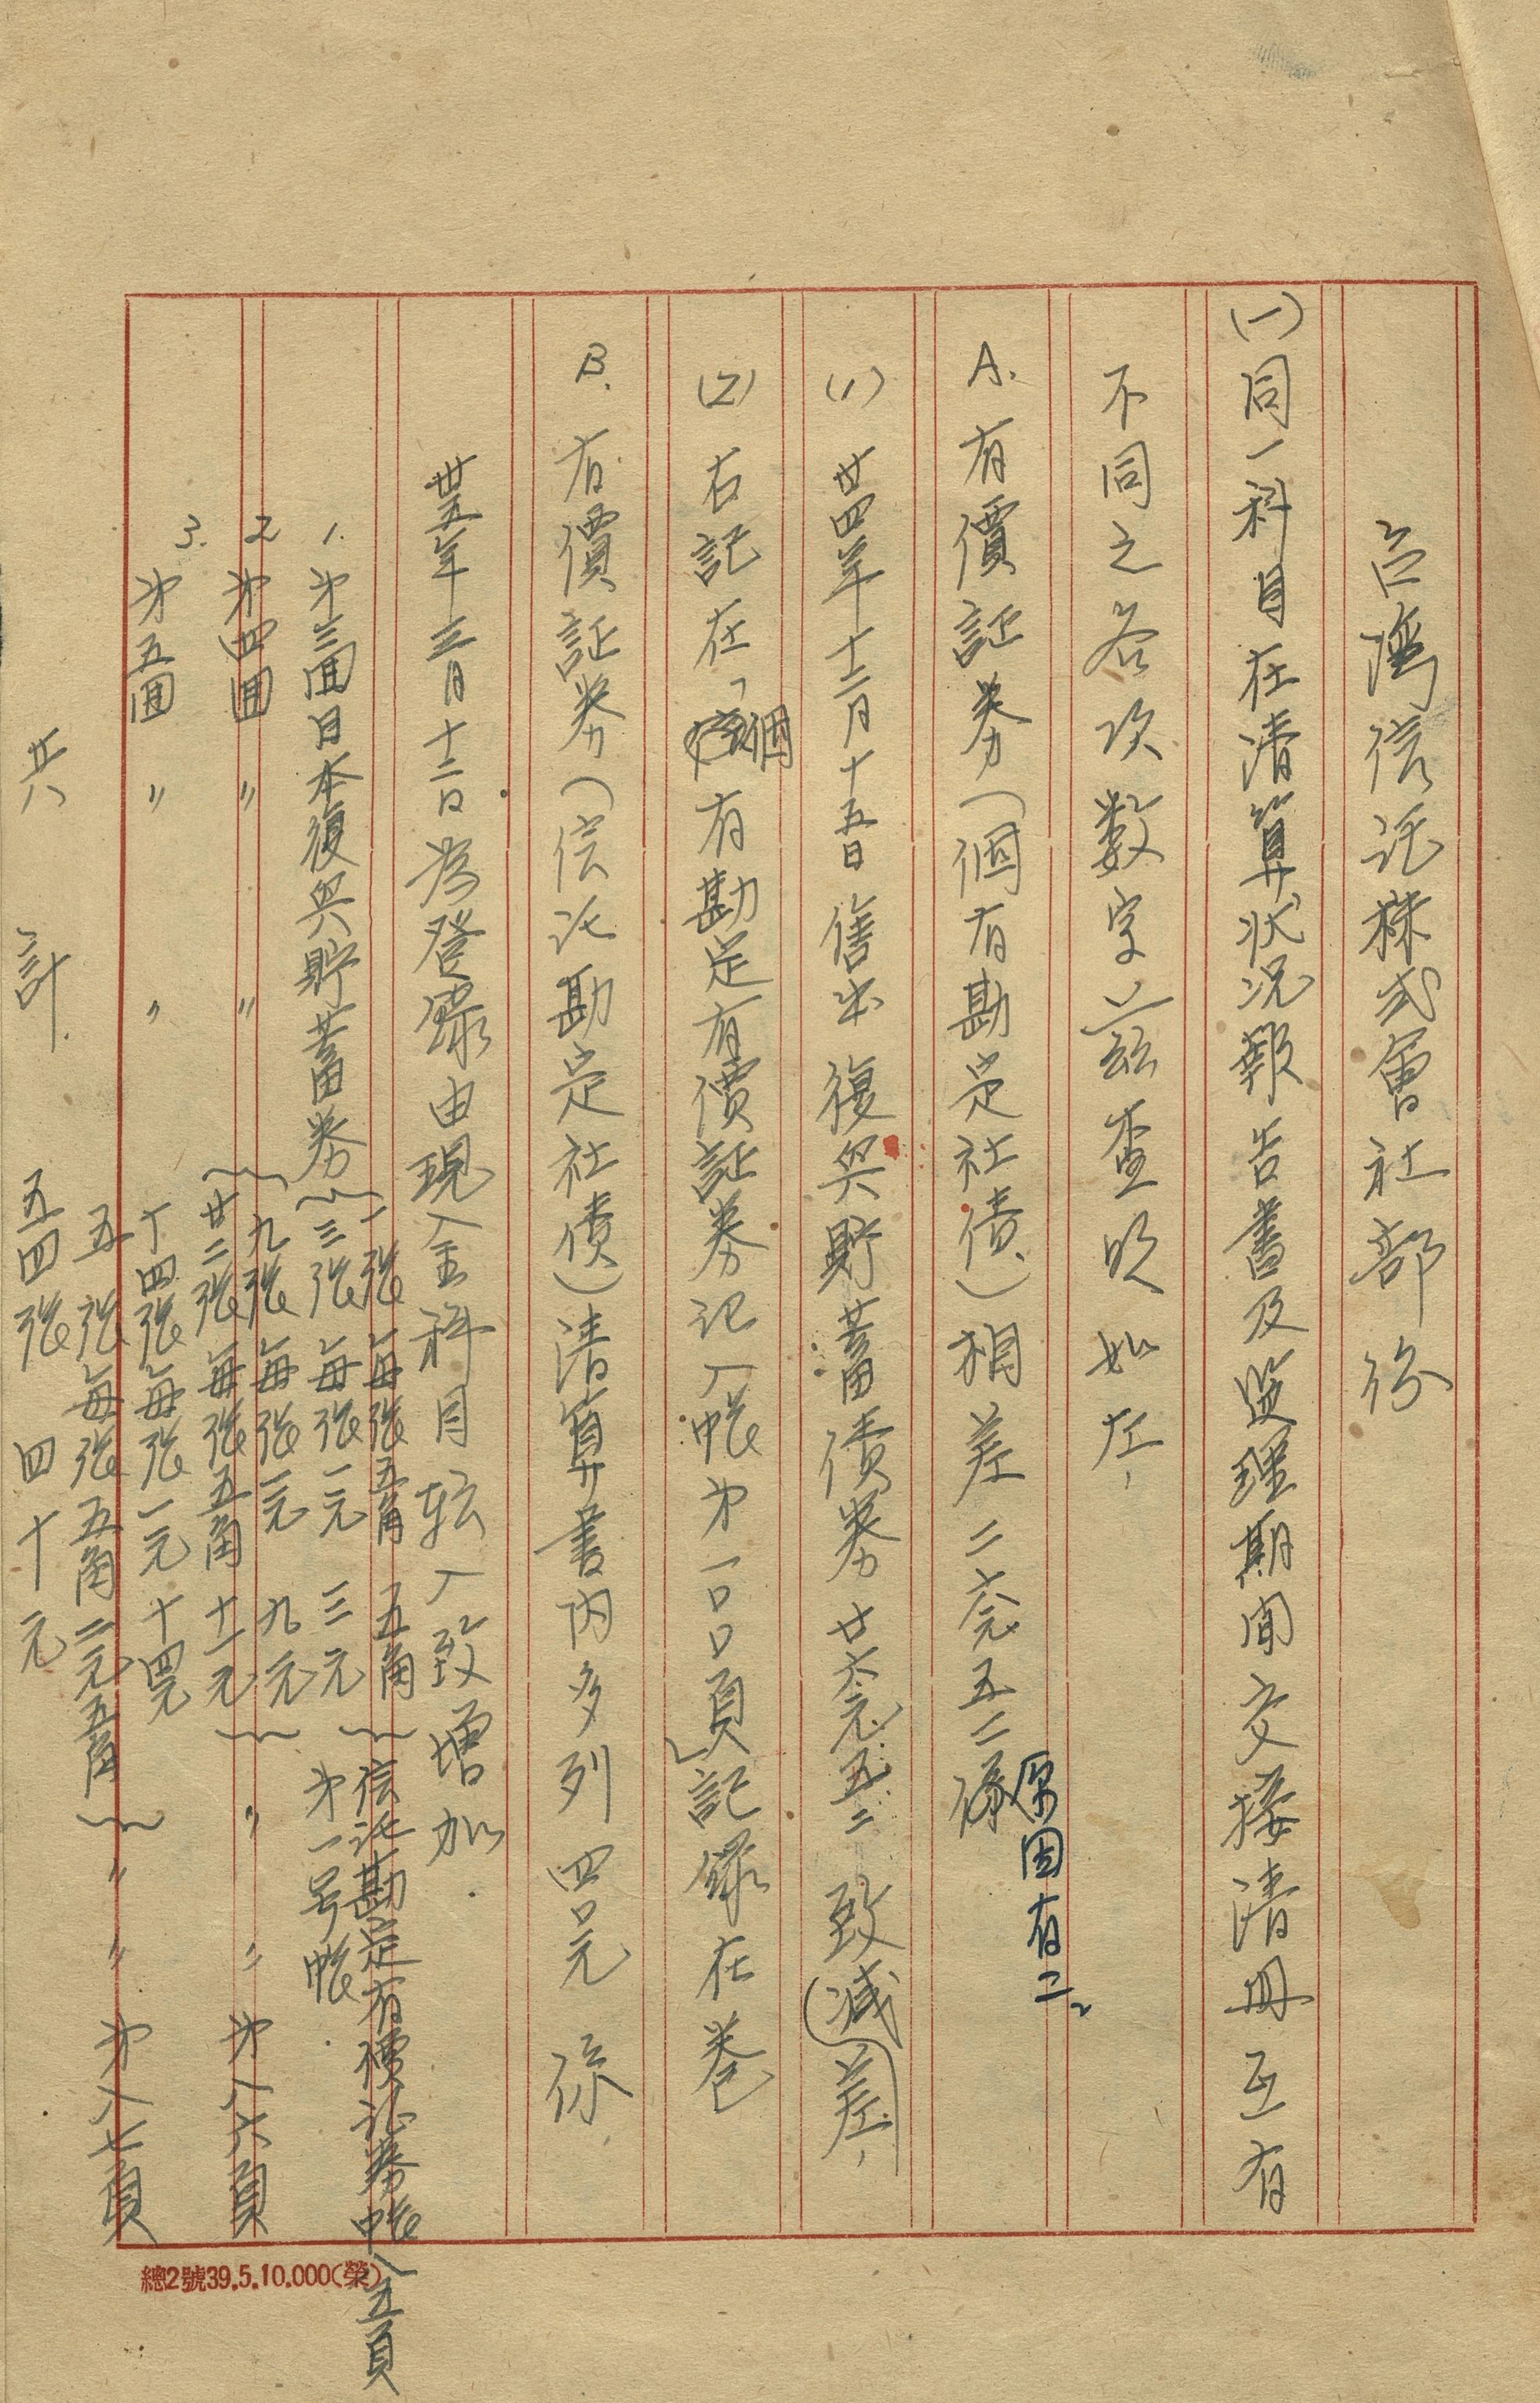 台湾信託株式會社部份
(一)同一科目在清算狀况報告書及監理期间交接清册互有
不同之各次数字兹查明如左,
A. 有價証券(個有勘定社债)相差二六元五二係
原因有二、
(1) 廿四年十二月十五日售出復兴貯蓄债券廿六元五二致(减)差,
(2) 右記在「個有勘定有價証券記入帳第一〇〇頁」記録在卷
B. 有價証券(信託勘定社债)清算書内多列四〇元係
卅五年三月十二日為登錄由現金科目転入致增加.
1. 第三回日本復兴貯蓄券
一张每张五角 五角
三张每张一元 三元
信託勘定有價証券帳八五頁
第一号帳
2 第四回 〃 〃
九张每张一元 九元
廿二张每张五角 十一元
〃 〃 第八六頁
3. 第五回 〃 〃
十四张每张一元 十四元
五张每张五角 二元五角
〃 〃 第八七頁
共計. 五四张 四十元
總2號39.5.10.000(榮)